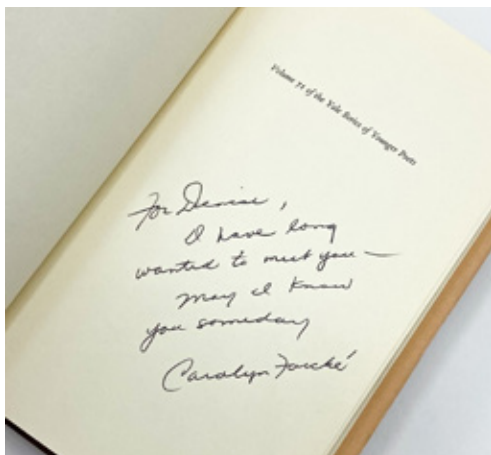 Volume 71 of the Yale Series of Younger Poets
For Denise,
I have long
wanted to meet you —
May I know
you someday
Carolyn Forché